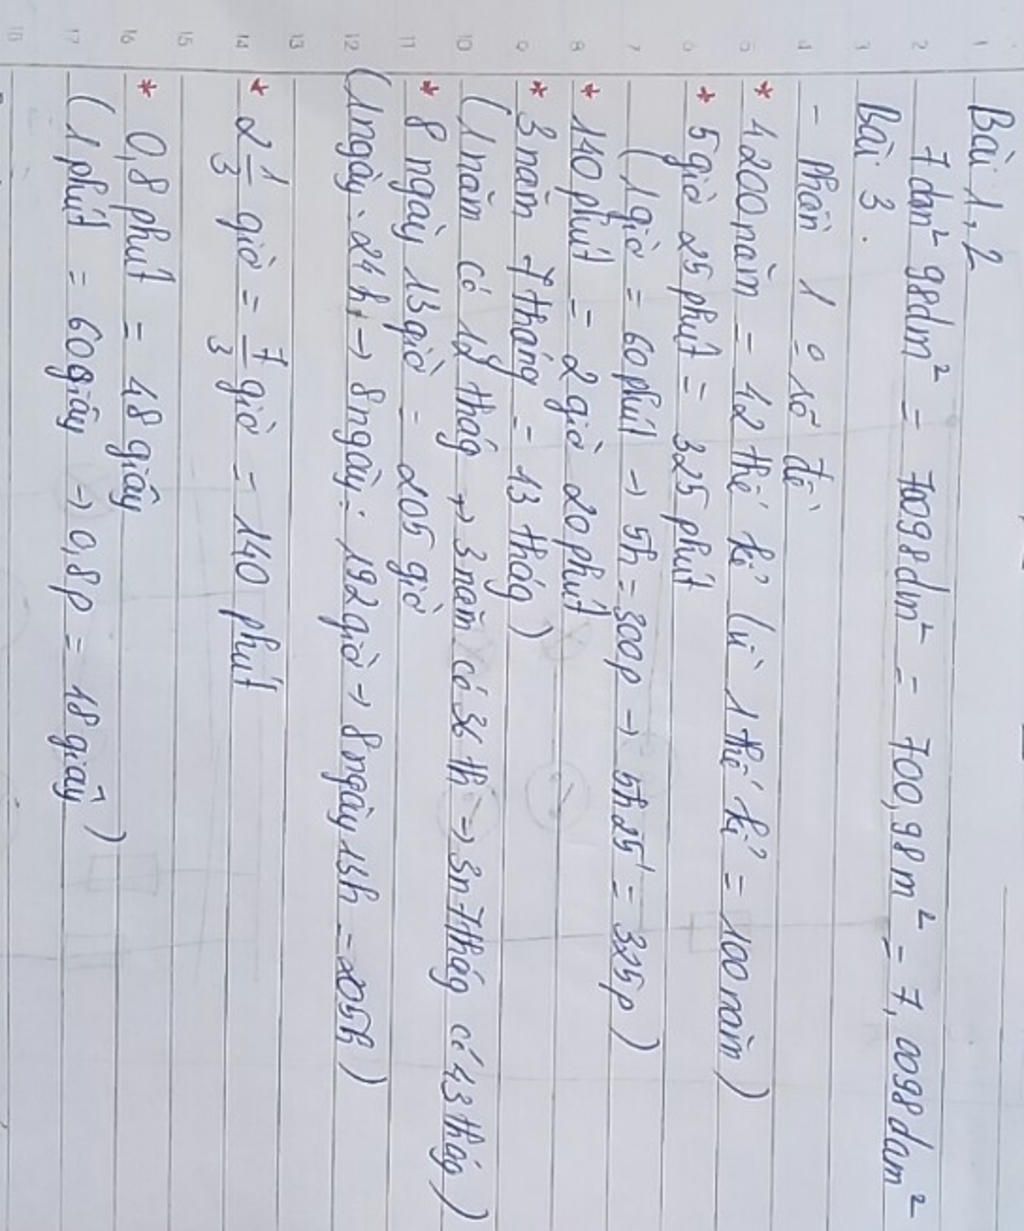 Bài 1, 2
7 dam² 98dm² = 70098dm² = 700,98m² = 7,0098dam²
Bài 3.
- Phần 1 số đề
* 4200năm = 42 thế kỉ (vì 1 thế kỉ = 100năm)
* 5giờ 25phút = 325 phút
(1giờ = 60phút → 5h = 300p → 5h25' = 325p)
* 140phút = 2giờ 20phút
* 3năm 7tháng = 43 thág)
(1năm có 12 thág → 3năm có 36 th → 3n 7thág có 43 thág)
* 8 ngày 13giờ = 205 giờ
(1ngày: 24h → 8ngày: 192giờ → 8ngày13h = 205h)
* 2 1/3 giờ = 7/3 giờ = 140 phút
* 0,8 phút = 48 giây
(1 phút = 60giây → 0,8p = 48 giây)